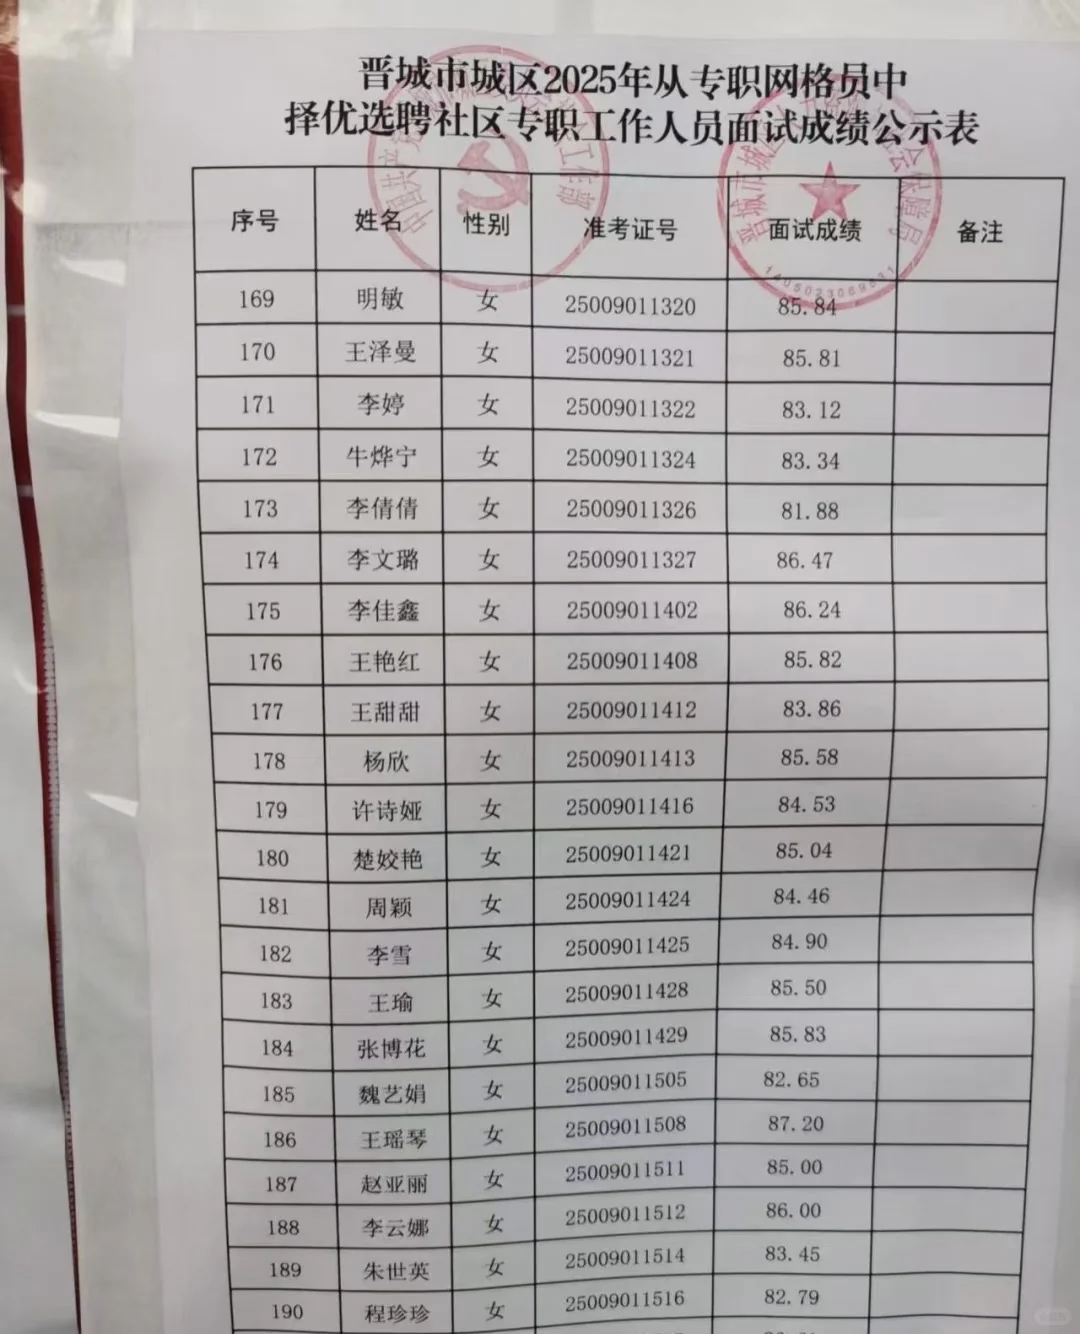 晋城市城区2025年从专职网格员中
择优选聘社区专职工作人员面试成绩公示表
序号 姓名 性别 准考证号 面试成绩 备注
169 明敏 女 25009011320 85.84
170 王泽曼 女 25009011321 85.81
171 李婷 女 25009011322 83.12
172 牛烨宁 女 25009011324 83.34
173 李倩倩 女 25009011326 81.88
174 李文璐 女 25009011327 86.47
175 李佳鑫 女 25009011402 86.24
176 王艳红 女 25009011408 85.82
177 王甜甜 女 25009011412 83.86
178 杨欣 女 25009011413 85.58
179 许诗娅 女 25009011416 84.53
180 楚姣艳 女 25009011421 85.04
181 周颖 女 25009011424 84.46
182 李雪 女 25009011425 84.90
183 王瑜 女 25009011428 85.50
184 张博花 女 25009011429 85.83
185 魏艺娟 女 25009011505 82.65
186 王瑶琴 女 25009011508 87.20
187 赵亚丽 女 25009011511 85.00
188 李云娜 女 25009011512 86.00
189 朱世英 女 25009011514 83.45
190 程珍珍 女 25009011516 82.79